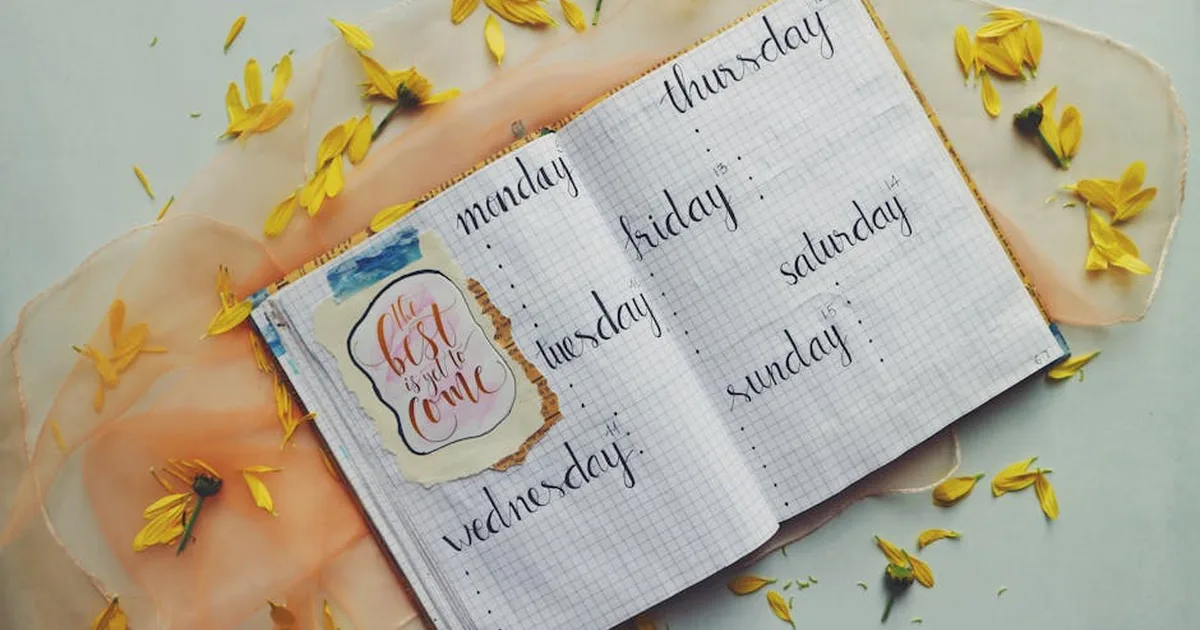 monday
the
best
is yet to
come
tuesday
wednesday
11
thursday
friday
13
saturday
14
sunday
15
67